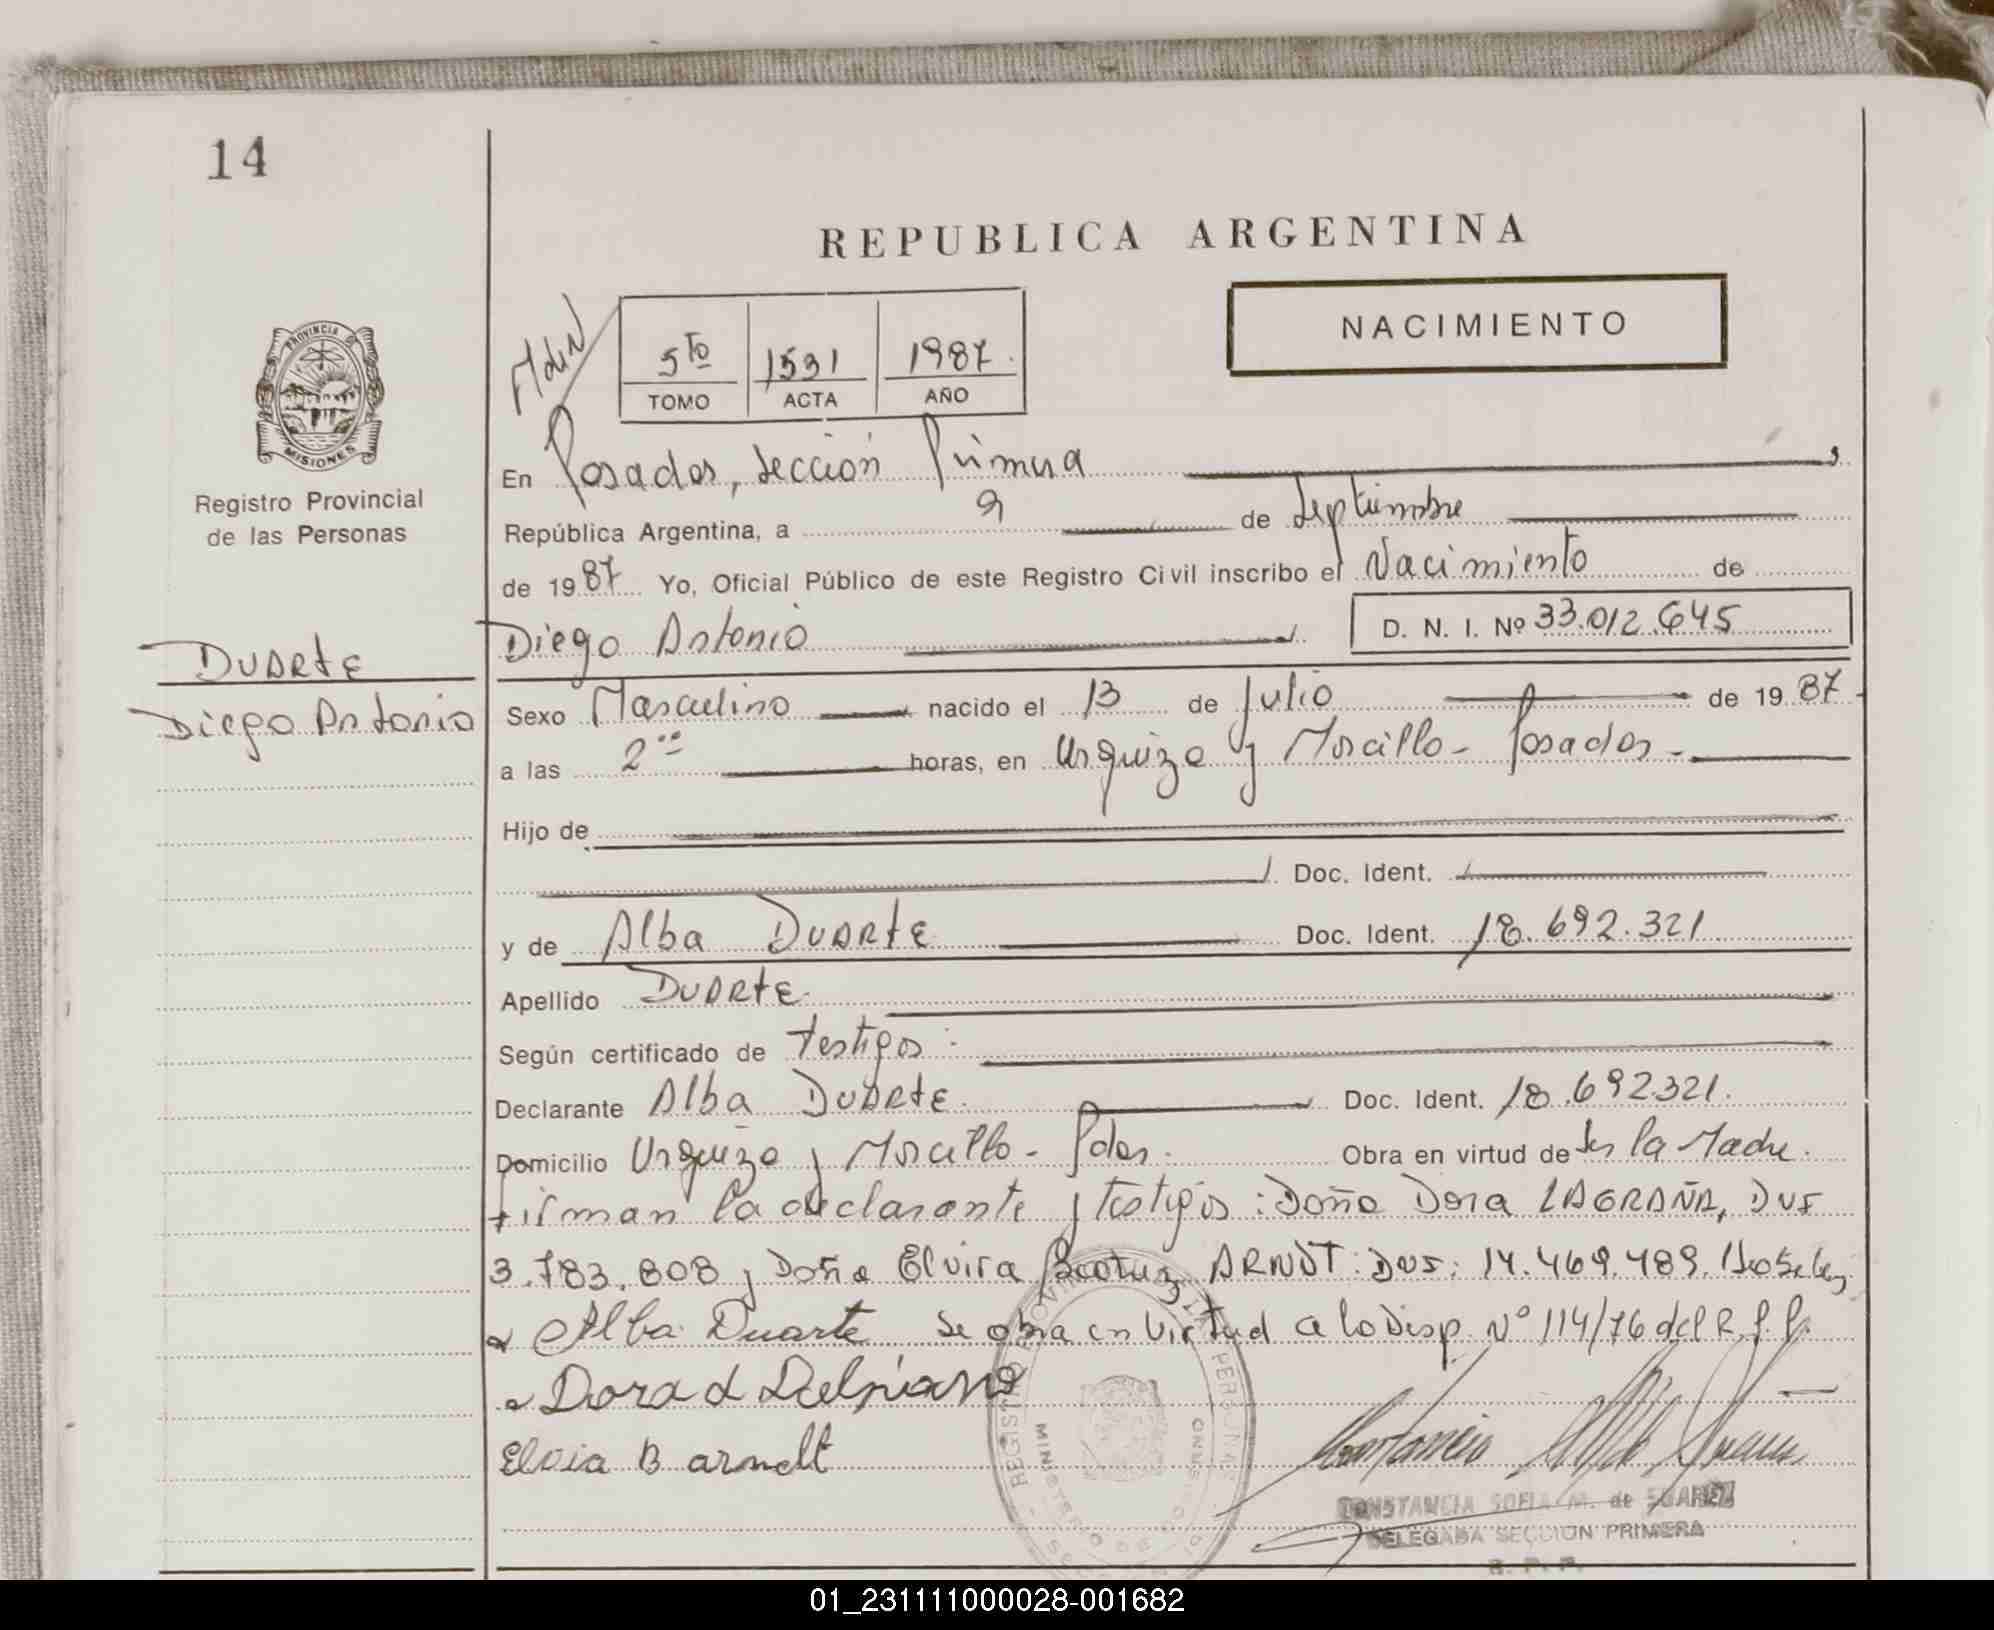 14
REPUBLICA ARGENTINA
NACIMIENTO
5to 1531 1987.
TOMO ACTA AÑO
PROVINCIA DE
MISIONES
Registro Provincial
de las Personas
En Posadas, Sección Primera
República Argentina, a 9 de Septiembre
de 1987 Yo, Oficial Público de este Registro Civil inscribo el Nacimiento de
Diego Antonio D. N. I. Nº 33.012.645
DUARTE
Diego Antonio
Sexo Masculino nacido el 13 de Julio de 1987
a las 2 horas, en Urquiza y Morcillo - Posadas -
Hijo de
Doc. Ident.
y de Alba DUARTE Doc. Ident. 18.692.321
Apellido DUARTE
Según certificado de testigos
Declarante Alba DUARTE Doc. Ident. 18.692.321.
Domicilio Urquiza y Morcillo - Pdas. Obra en virtud de Ser la Madre.
Firman la declarante y testigos: Doña Dora LAGRAÑA, DUI
3.783.808 y Doña Elvira Beatriz ARNDT: DUI: 14.469.489.
Alba Duarte Se obra en virtud a la Disp. Nº 114/76 del R.P.P.
Dora L Delpiano
Elvia B arndt
CONSTANCIA SOFIA M. de SUAREZ
DELEGADA SECCION PRIMERA
R. P. P.
01_231111000028-001682